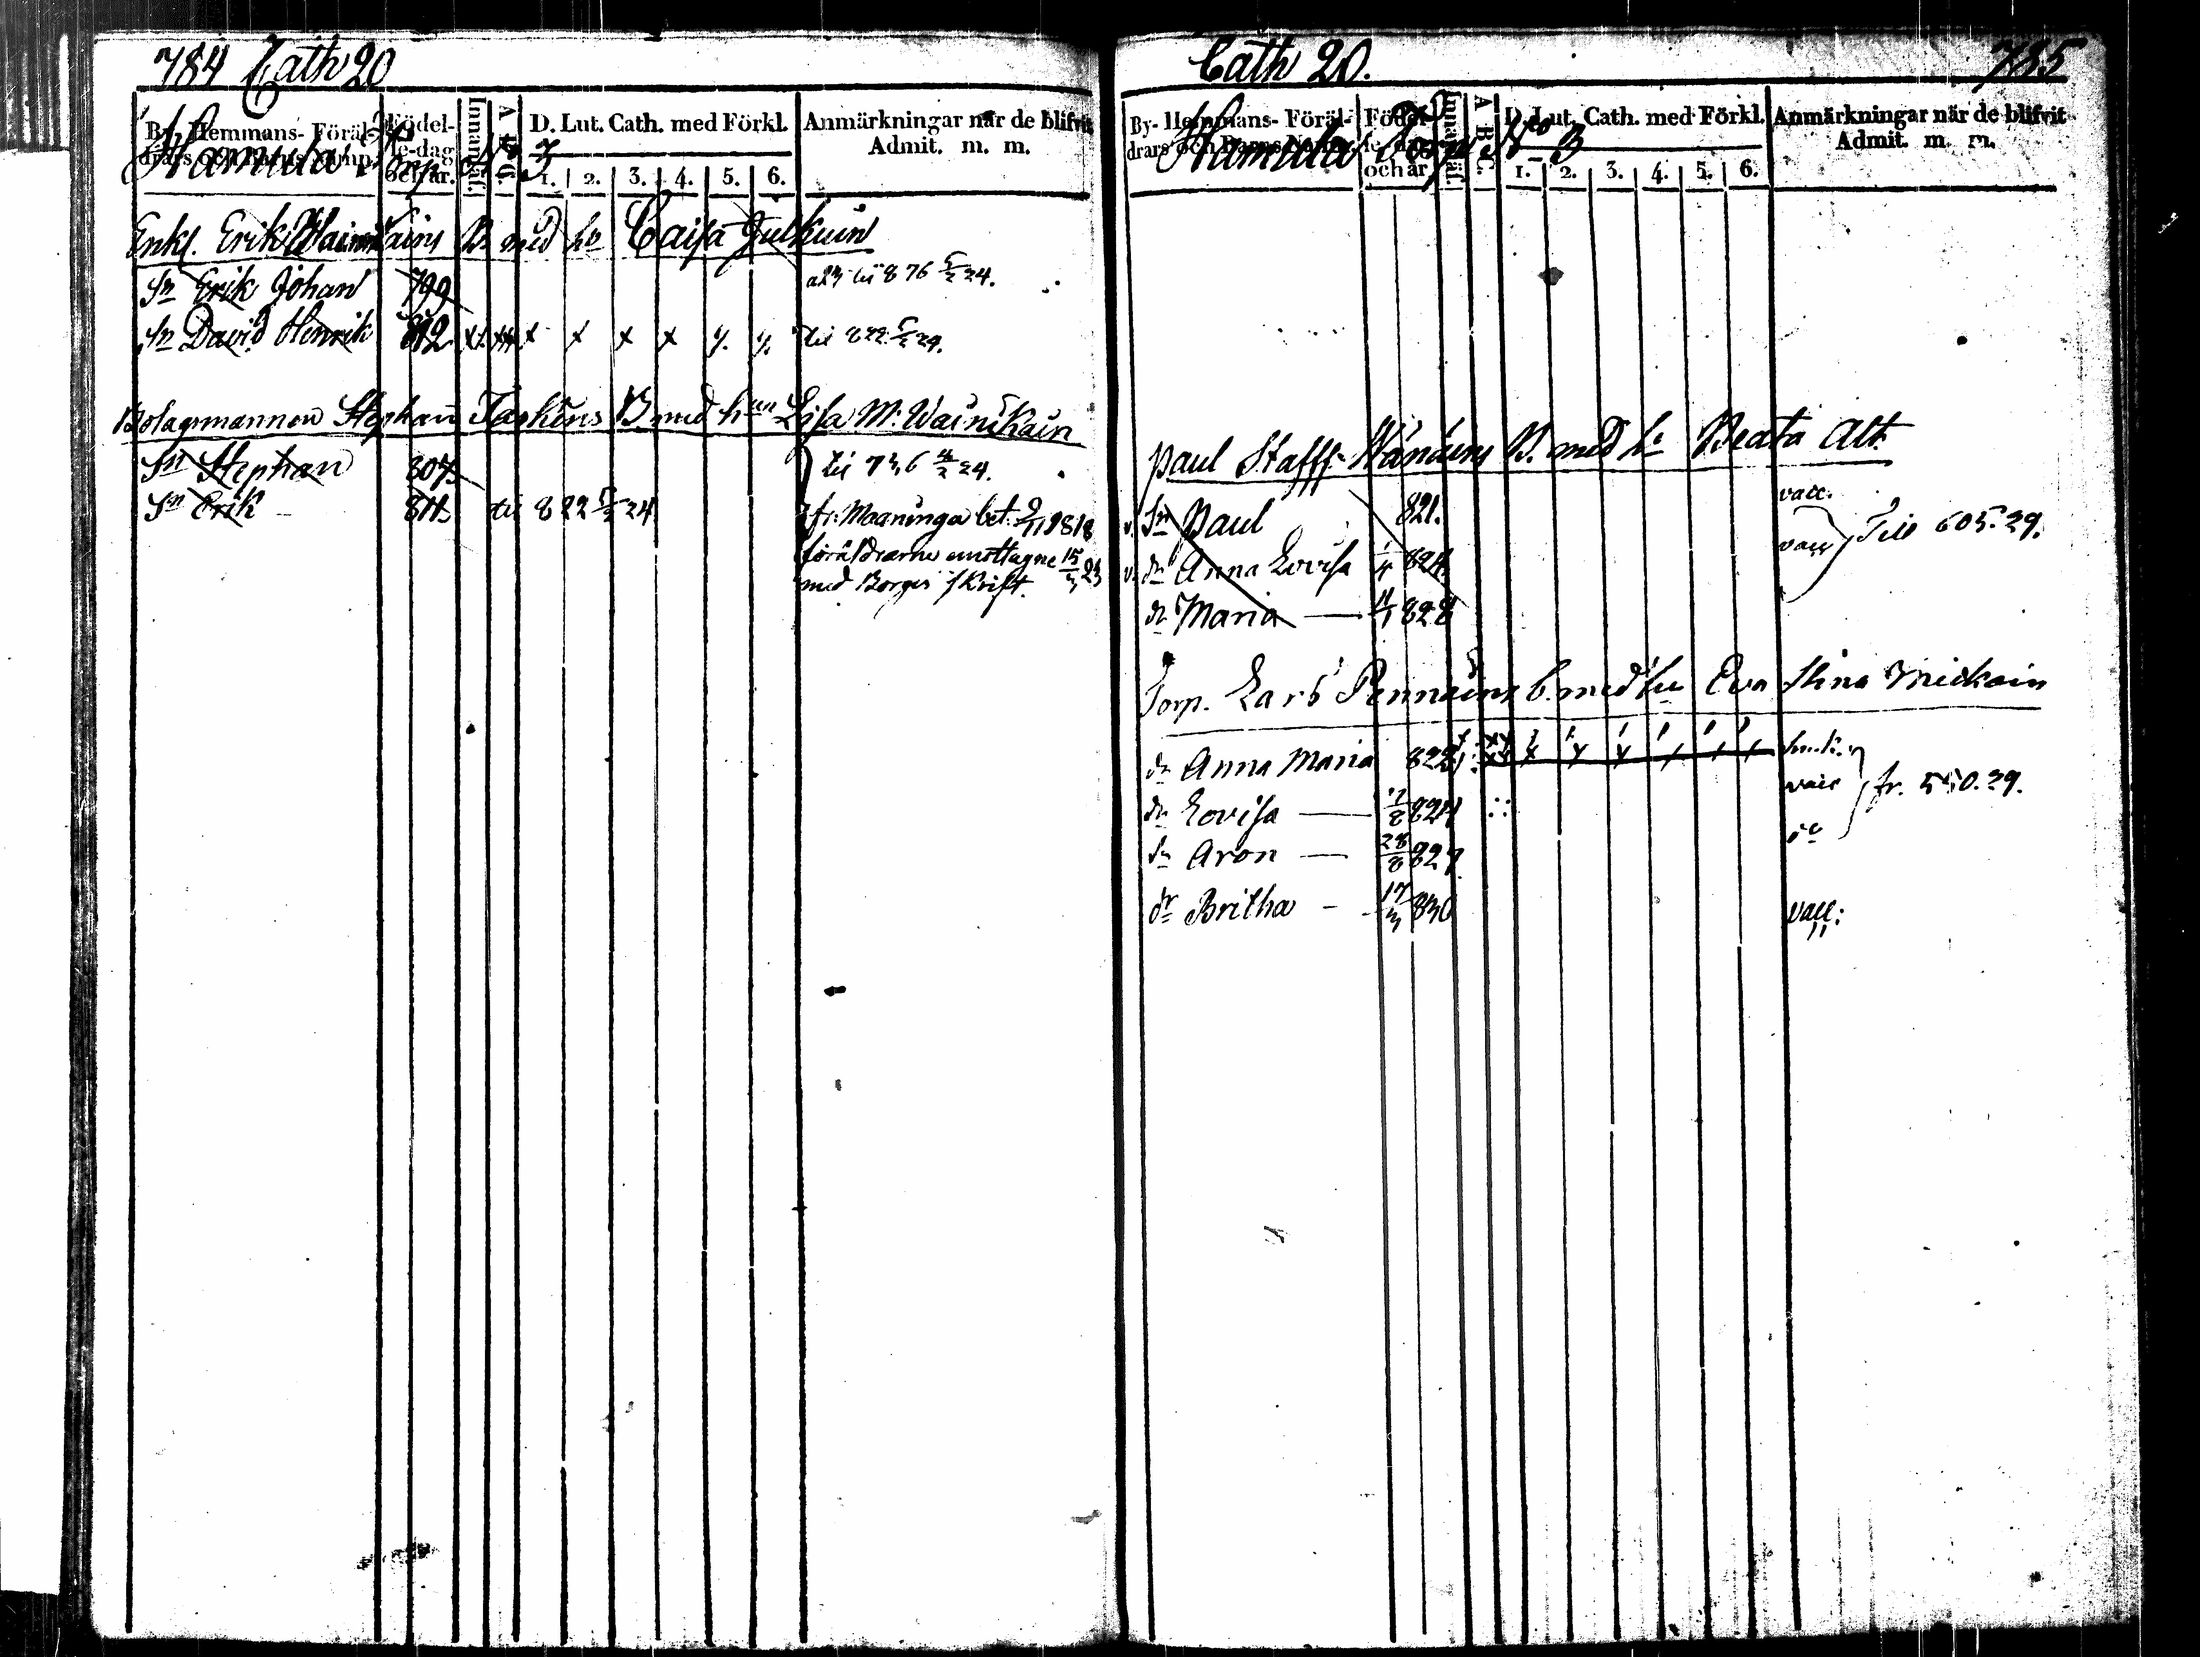 784 Cath 20
By- Hemmans- Föräldrars och Barns Namn.
Födelse-dag och år.
Innanläs.
A B C.
D. Lut. Cath. med Förkl.
1. 2. 3. 4. 5. 6.
Anmärkningar när de blifvit Admit. m. m.
Hamula Torp No 3
Enkl. Erik Wainikains B med ho Caisa Julkuin
Sn Erik Johan 799 til 876 5/2 24.
Sn David Henrik 812 x x x x x y. y. til 822 5/2 29.
Bolagsmannen Stephan Taskins B med hun Lisa M. Wainikain
Sn Stephan 807. til 736 4/2 24.
Sn Erik - 811. til 822 5/2 24
fr. Maaninga bet. 9/11 1818
föräldrarne emottagne 15/3 23
med Borges skrift.
Cath 20. 785
By- Hemmans- Föräldrars och Barns Namn.
Födelse-dag och år.
Innanläs.
A B C.
D. Lut. Cath. med Förkl.
1. 2. 3. 4. 5. 6.
Anmärkningar när de blifvit Admit. m. m.
Hamula Torp No 3
Paul Staffs. Wänäins B. med h. Beata Alt.
v. Sn Paul 821. vacc.
v. dr Anna Lovisa 1/4 824. vacc Till 605. 29.
dr Maria — 11/1 828
Torp. Lars Pennains b. med hu Eva Stina Miekain
dr Anna Maria 822
dr Lovisa — 17/8 824 vacc fr. 550. 29.
Sn Aron — 28/8 827. do
dr Britha - 17/3 830 vacc: